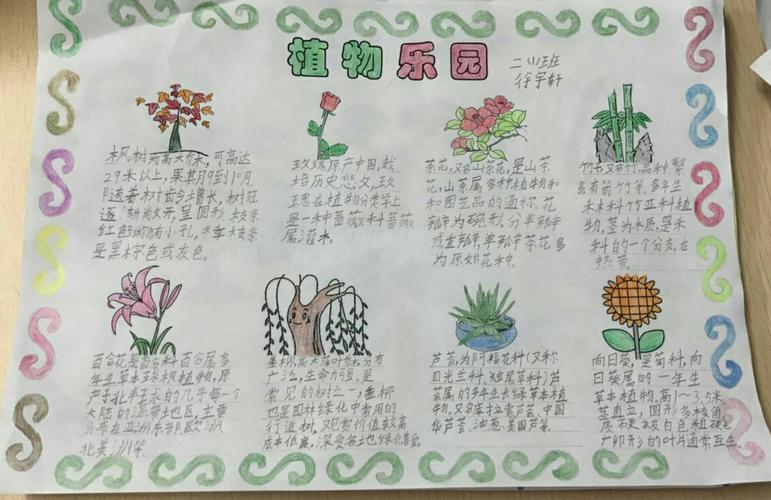 植物乐园
二(1)班
徐宇轩
枫树为高大乔木，可高达
29米以上，果其月9到10月
随着树龄增长，树冠
逐渐敞开，呈圆形 枝条
红色 小孔，冬季枝条
是黑棕色或灰色。
玫瑰原产中国，栽
培历史悠久，玫
瑰在植物分类学上
是一种蔷薇科蔷薇
属灌木。
茶花，又名山茶花，是山茶
花，山茶属多种植物和
和园艺品的通称，花
瓣为碗形，分单瓣
或重瓣，单瓣茶花多
为原始花种。
竹 又名竹，品种繁
多有箭竹等，多年生
禾本科竹亚科植
物，茎为木质，是禾
科的一个分支，在
热带、
百合花是百合科百合属多
年生草本球根植物，原
产于北半球的几乎每一个
大陆的温带地区，主要
分布在亚洲东部欧洲
北美洲等。
垂柳，高大落叶 分布
广泛，生命力强，是
常见的树之一，垂柳
也是园林绿化中常用的
行道树，观赏价值较高
成本低廉，深受各地绿化喜爱
芦荟，为阿福花科(又称
日光兰科、独尾草科)芦
荟属的多年生长绿草本植
物，又名库拉索芦荟、中国
华芦荟、油葱、美国芦荟。
向日葵，是菊科，向
日葵属的一年生
草本植物，高1～3.5米
茎直立，圆形多棱角
质 被白色粗硬毛
广卵形的叶片通常互生